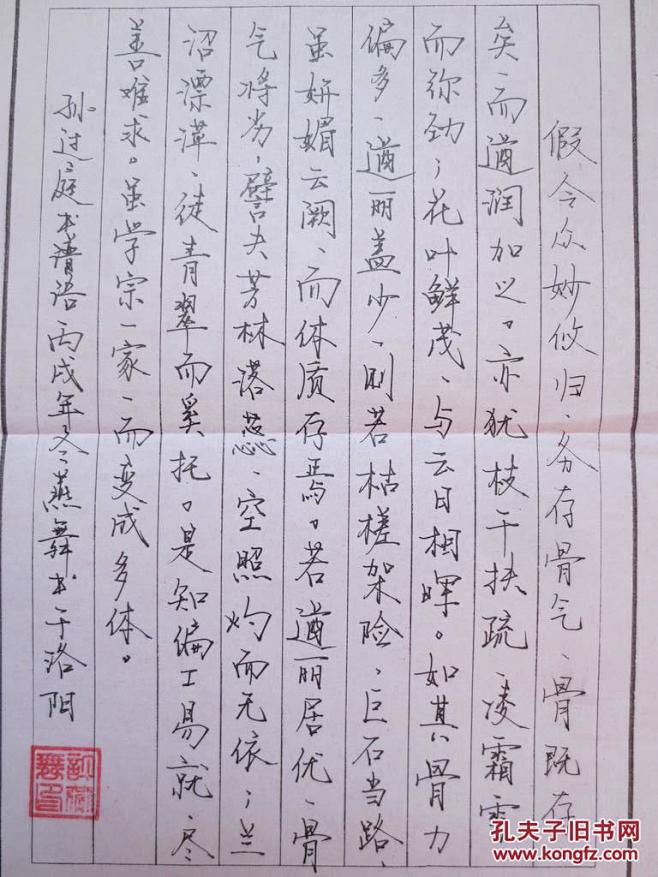 假令众妙攸归、务存骨气、骨既存
矣、而遒润加之。亦犹枝干扶疏、凌霜雪
而弥劲；花叶鲜茂、与云日相晖。如其骨力
偏多、遒丽盖少、则若枯槎架险、巨石当路、
虽妍媚云阙、而体质存焉。若遒丽居优、骨
气将劣，譬夫芳林落蕊、空照灼而无依；兰
沼漂萍、徒青翠而奚托。是知偏工易就、尽
善难求。虽学宗一家、而变成多体。
孙过庭书谱语丙戌年冬燕舞书于洛阳
孔夫子旧书网
www.kongfz.com